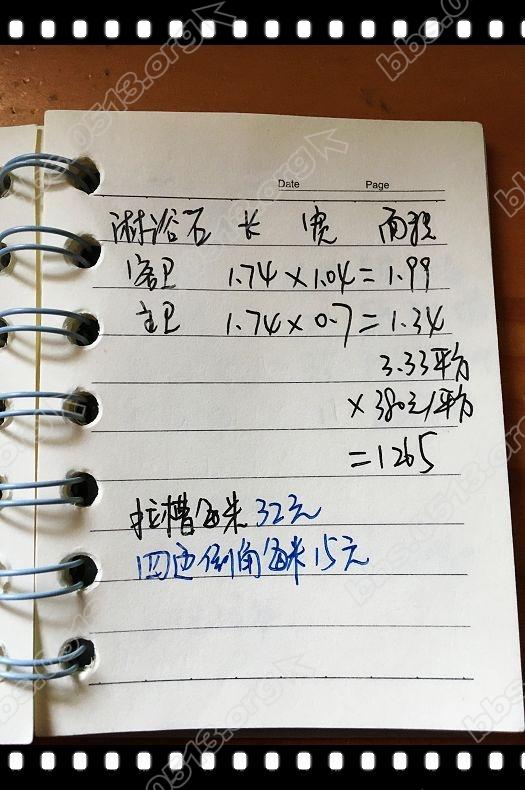 bbs.0513.org
bbs.0513.org
Date Page
淋浴石 长 宽 面积
客卫 1.74×1.04=1.99
主卫 1.74×0.7=1.34
3.33平方
×380元/平方
=1265
拉槽每米32元
四边倒角每米15元
bbs.0513.org
bbs.0513.org